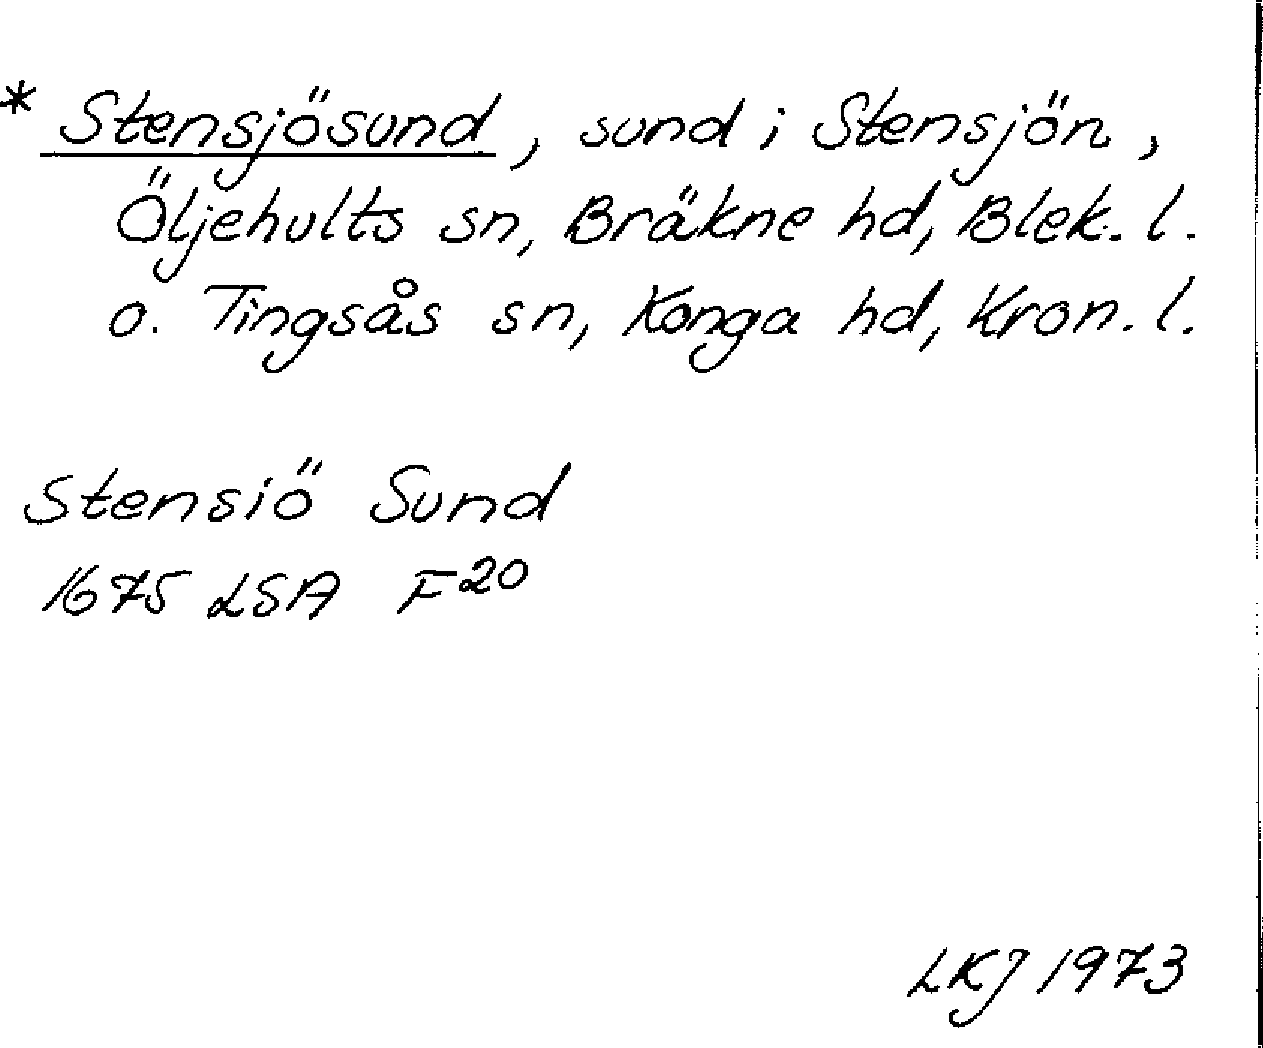 * Stensjösund, sund i Stensjön,
Öljehults sn, Bräkne hd, Blek. l.
o. Tingsås sn, Konga hd, Kron. l.
Stensiö Sund
1675 LSA F20
LKJ 1973